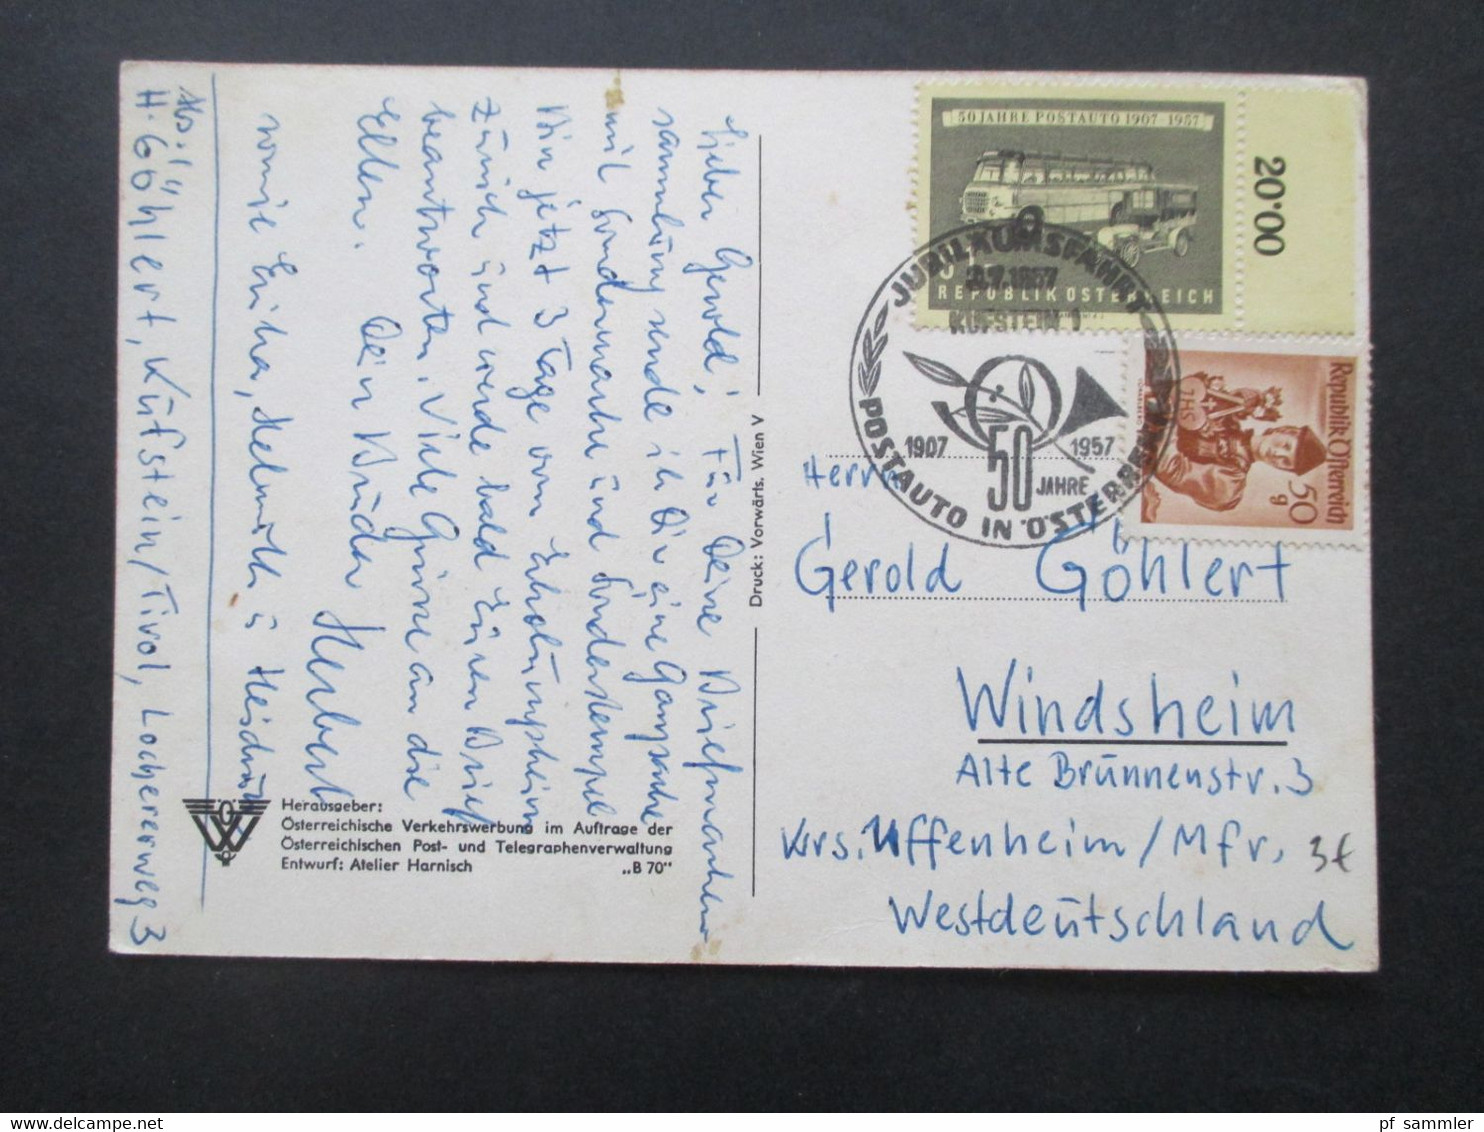 Abs.:
H. Göhlert, Kufstein/Tirol, Lochererweg 3
Lieber Gerold! Für Deine Briefmarken
sammlung sende ich Dir eine Ganzsache
mit Sondermarke und Sonderstempel
Bin jetzt 3 Tage vom Erholungsheim
zurück und werde bald Euren Brief
beantworten. Viele Grüsse an die
Eltern. Dein Bruder Herbert
sowie Erika, Helmuth u. Heidrun
Herausgeber:
Österreichische Verkehrswerbung im Auftrage der
Österreichischen Post- und Telegraphenverwaltung
Entwurf: Atelier Harnisch „B 70"
Druck: Vorwärts, Wien V
50 JAHRE POSTAUTO 1907 - 1957
REPUBLIK ÖSTERREICH
20'00
JUBILÄUMSFAHRT
1957
KUFSTEIN 1
1907 50 1957
JAHRE
POSTAUTO IN ÖSTERREICH
Republik Österreich
50
g
Herrn
Gerold Göhlert
Windsheim
Alte Brunnenstr. 3
Krs. Uffenheim/Mfr.
Westdeutschland
3€
pf sammler